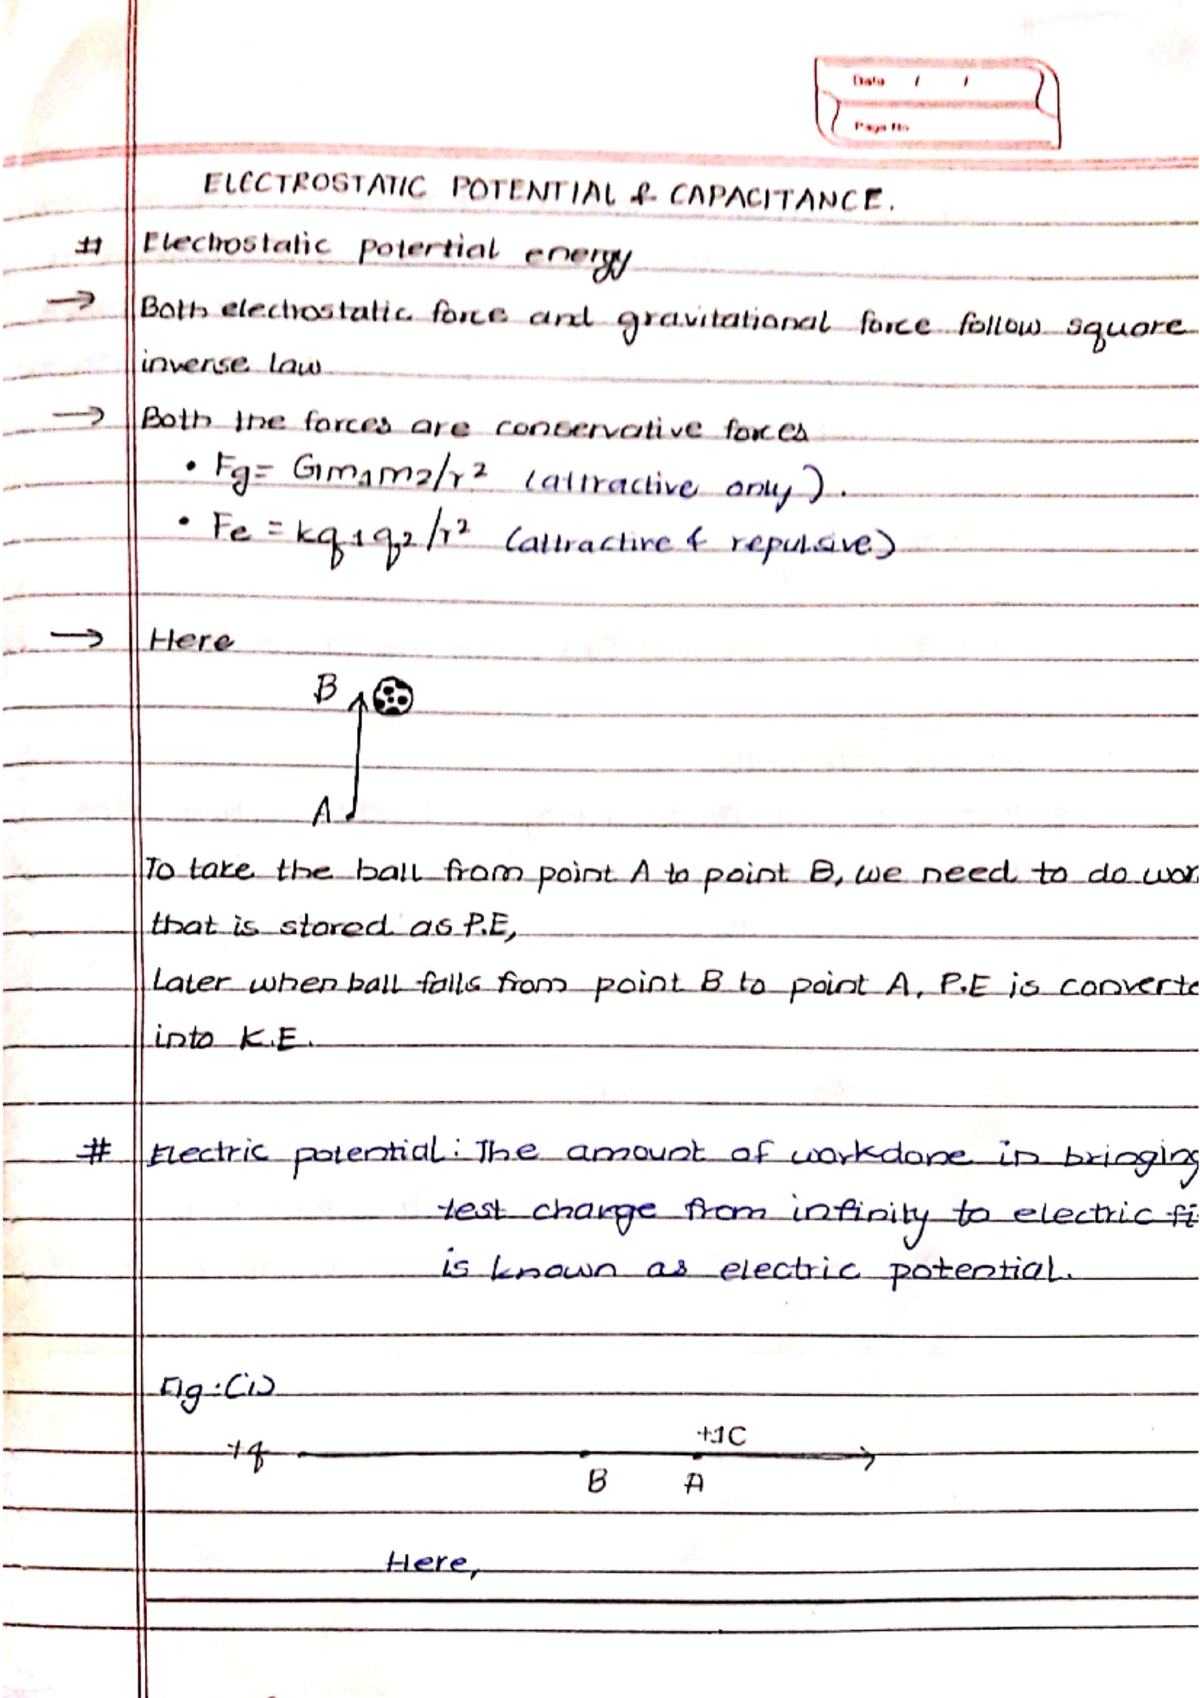 Date / /
Page No
ELECTROSTATIC POTENTIAL & CAPACITANCE.
# Electrostatic potential energy
→ Both electrostatic force and gravitational force follow square
inverse law
→ Both the forces are conservative forces
• Fg = Gm1m2/r²  (attractive only).
• Fe = kq1q2/r²  (attractive & repulsive)
→ Here
B
A
To take the ball from point A to point B, we need to do wor
that is stored as P.E,
Later when ball falls from point B to point A, P.E is converte
into K.E.
# Electric potential: The amount of workdone in bringing
test charge from infinity to electric fi
is known as electric potential.
Fig:(i)
+q +1C
B A
Here,